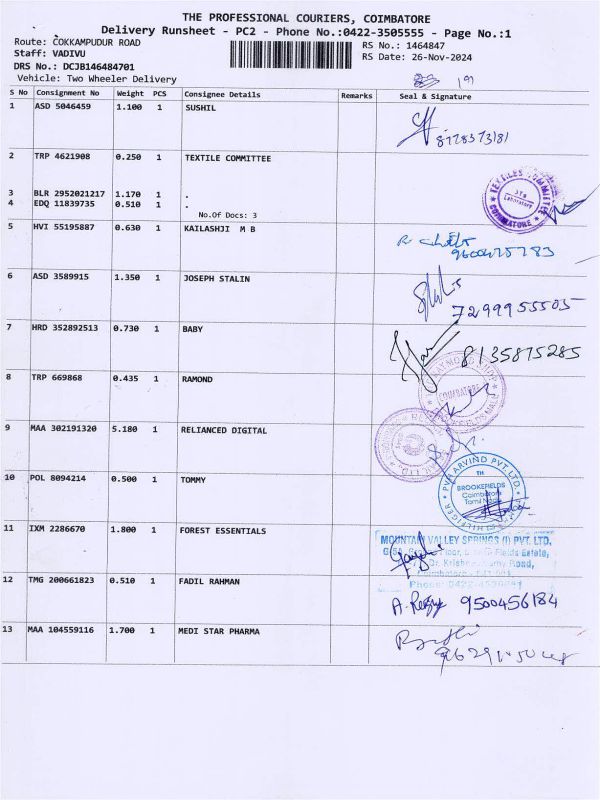 THE PROFESSIONAL COURIERS, COIMBATORE
Delivery Runsheet - PC2 - Phone No.:0422-3505555 - Page No.:1
Route: COKKAMPUDUR ROAD
RS No.: 1464847
Staff: VADIVU
RS Date: 26-Nov-2024
DRS No.: DCJB146484701
Vehicle: Two Wheeler Delivery
S No Consignment No Weight PCS Consignee Details Remarks Seal & Signature
1 ASD 5046459 1.100 1 SUSHIL
2 TRP 4621908 0.250 1 TEXTILE COMMITTEE
TEXTILES COMMITTEE
Laboratory
COIMBATORE
3 BLR 2952021217 1.170 1 .
4 EDQ 11839735 0.510 1 .
No.Of Docs: 3
5 HVI 55195887 0.630 1 KAILASHJI M B
6 ASD 3589915 1.350 1 JOSEPH STALIN
7299955505
7 HRD 352892513 0.730 1 BABY
8135875285
8 TRP 669868 0.435 1 RAMOND
COIMBATORE
9 MAA 302191320 5.180 1 RELIANCED DIGITAL
10 POL 8094214 0.500 1 TOMMY
PVH ARVIND PVT. LTD.
TH
BROOKEFIELDS
Coimbatore
Tamil Nadu
11 IXM 2286670 1.800 1 FOREST ESSENTIALS
MOUNTAIN VALLEY SPRINGS (I) PVT. LTD.
12 TMG 200661823 0.510 1 FADIL RAHMAN
9500456184
13 MAA 104559116 1.700 1 MEDI STAR PHARMA